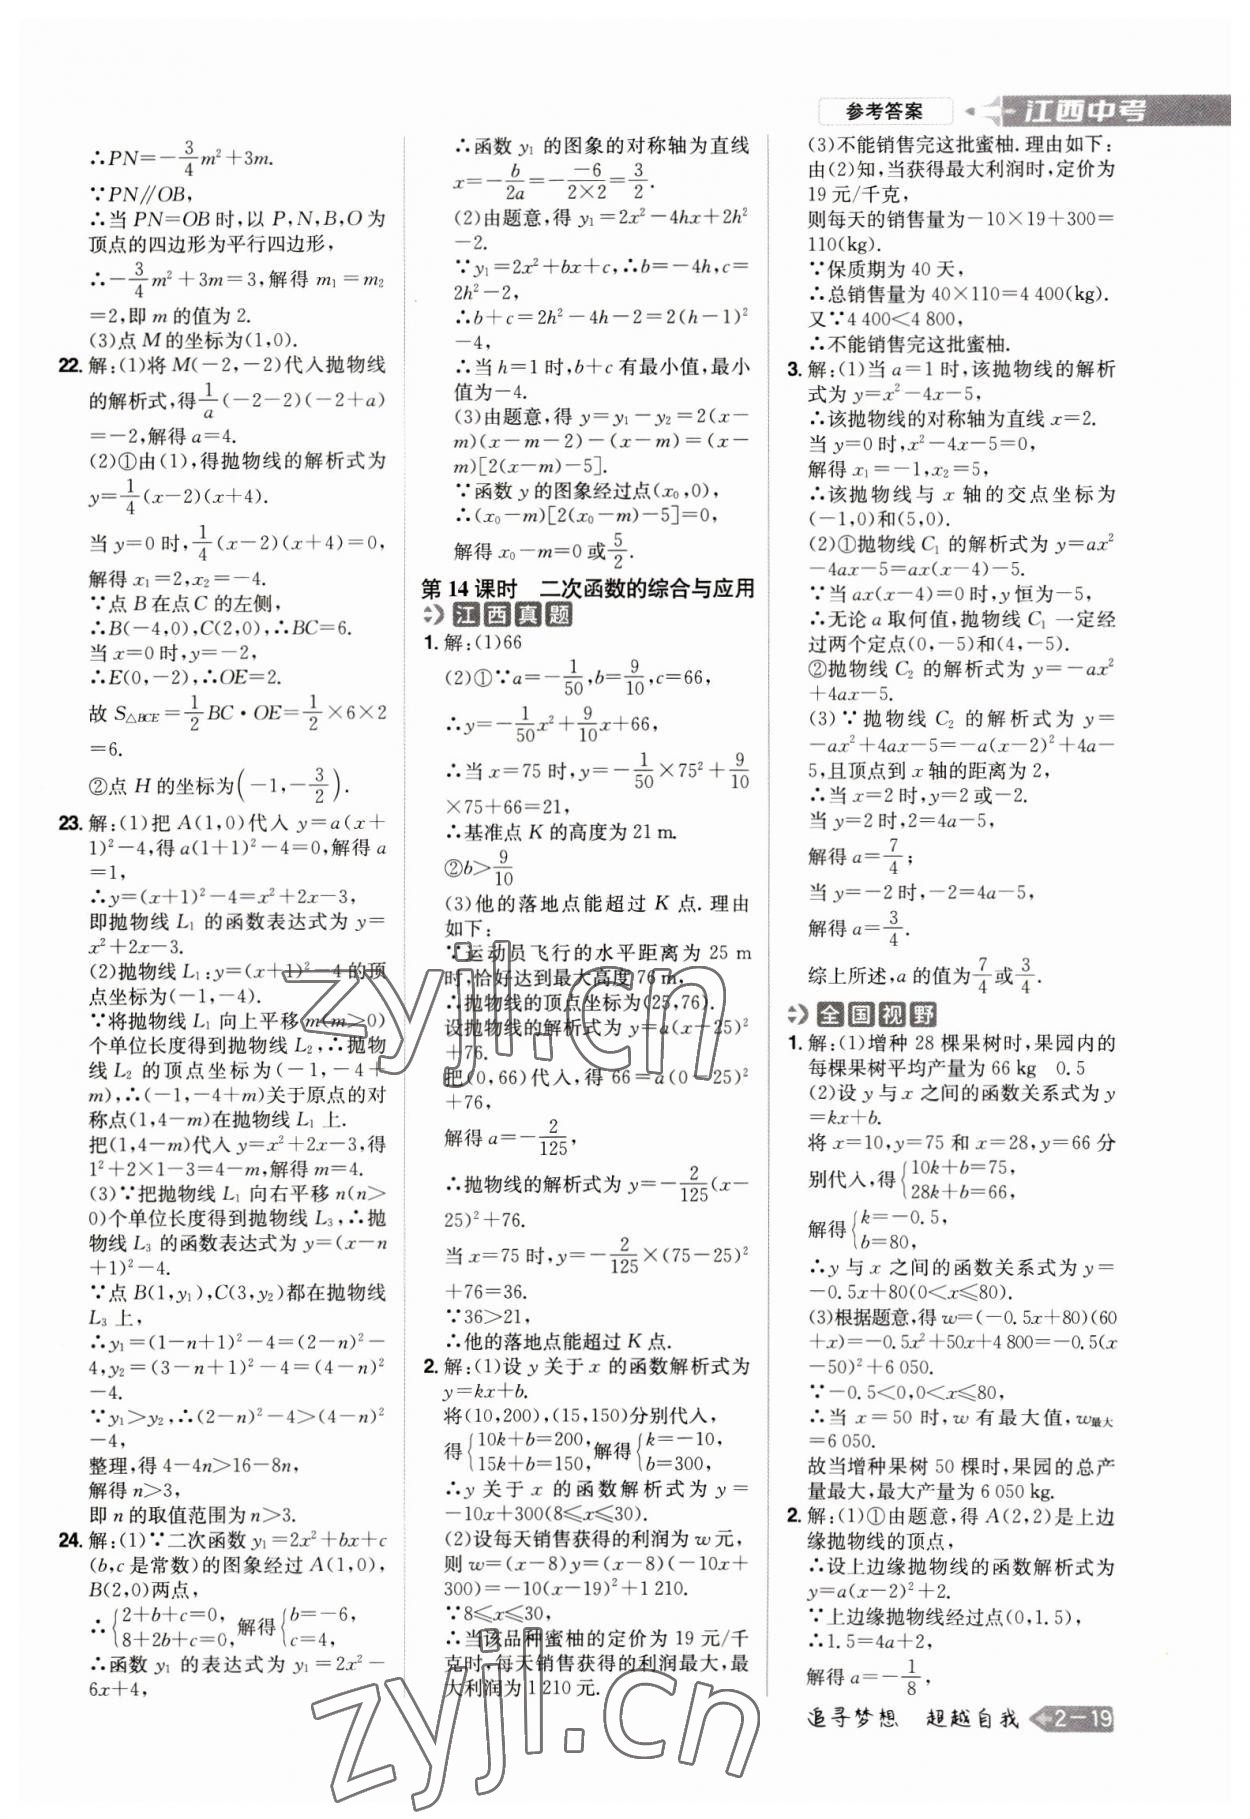 参考答案
江西中考
∴PN=-3/4m²+3m.
∵PN∥OB,
∴当 PN=OB 时,以 P,N,B,O 为
顶点的四边形为平行四边形,
∴-3/4m²+3m=3,解得 m₁=m₂
=2,即 m 的值为 2.
(3)点 M 的坐标为(1,0).
22. 解:(1)将 M(-2,-2)代入抛物线
的解析式,得1/a(-2-2)(-2+a)
=-2,解得 a=4.
(2)①由(1),得抛物线的解析式为
y=1/4(x-2)(x+4).
当 y=0 时,1/4(x-2)(x+4)=0,
解得 x₁=2,x₂=-4.
∵点 B 在点 C 的左侧,
∴B(-4,0),C(2,0),∴BC=6.
当 x=0 时,y=-2,
∴E(0,-2),∴OE=2.
故 S△BCE=1/2BC·OE=1/2×6×2
=6.
②点 H 的坐标为(-1,-3/2).
23. 解:(1)把 A(1,0)代入 y=a(x+
1)²-4,得 a(1+1)²-4=0,解得 a
=1,
∴y=(x+1)²-4=x²+2x-3,
即抛物线 L₁ 的函数表达式为 y=
x²+2x-3.
(2)抛物线 L₁:y=(x+1)²-4 的顶
点坐标为(-1,-4).
∵将抛物线 L₁ 向上平移 m(m>0)
个单位长度得到抛物线 L₂,∴抛物
线 L₂ 的顶点坐标为(-1,-4+
m),∴(-1,-4+m)关于原点的对
称点(1,4-m)在抛物线 L₁ 上.
把(1,4-m)代入 y=x²+2x-3,得
1²+2×1-3=4-m,解得 m=4.
(3)∵把抛物线 L₁ 向右平移 n(n>
0)个单位长度得到抛物线 L₃,∴抛
物线 L₃ 的函数表达式为 y=(x-n
+1)²-4.
∵点 B(1,y₁),C(3,y₂)都在抛物线
L₃ 上,
∴y₁=(1-n+1)²-4=(2-n)²-
4,y₂=(3-n+1)²-4=(4-n)²
-4.
∵y₁>y₂,∴(2-n)²-4>(4-n)²
-4,
整理,得 4-4n>16-8n,
解得 n>3.
即 n 的取值范围为 n>3.
24. 解:(1)∵二次函数 y₁=2x²+bx+c
(b,c 是常数)的图象经过 A(1,0),
B(2,0)两点,
∴{2+b+c=0, 8+2b+c=0,解得{b=-6, c=4,
∴函数 y₁ 的表达式为 y₁=2x²-
6x+4,
∴函数 y₁ 的图象的对称轴为直线
x=-b/2a=--6/2×2=3/2.
(2)由题意,得 y₁=2x²-4hx+2h²
-2.
∵y₁=2x²+bx+c,∴b=-4h,c=
2h²-2,
∴b+c=2h²-4h-2=2(h-1)²
-4,
∴当 h=1 时,b+c 有最小值,最小
值为-4.
(3)由题意,得 y=y₁-y₂=2(x-
m)(x-m-2)-(x-m)=(x-
m)[2(x-m)-5].
∵函数 y 的图象经过点(x₀,0),
∴(x₀-m)[2(x₀-m)-5]=0,
解得 x₀-m=0 或5/2.
第 14 课时 二次函数的综合与应用
江西真题
1. 解:(1)66
(2)①∵a=-1/50,b=9/10,c=66,
∴y=-1/50x²+9/10x+66,
∴当 x=75 时,y=-1/50×75²+9/10
×75+66=21,
∴基准点 K 的高度为 21 m.
②b>9/10
(3)他的落地点能超过 K 点. 理由
如下:
∵运动员飞行的水平距离为 25 m
时,恰好达到最大高度 76 m,
∴抛物线的顶点坐标为(25,76).
设抛物线的解析式为 y=a(x-25)²
+76.
把(0,66)代入,得 66=a(0-25)²
+76,
解得 a=-2/125,
∴抛物线的解析式为 y=-2/125(x-
25)²+76.
当 x=75 时,y=-2/125×(75-25)²
+76=36.
∵36>21,
∴他的落地点能超过 K 点.
2. 解:(1)设 y 关于 x 的函数解析式为
y=kx+b.
将(10,200),(15,150)分别代入,
得{10k+b=200, 15k+b=150,解得{k=-10, b=300,
∴y 关于 x 的函数解析式为 y=
-10x+300(8≤x≤30).
(2)设每天销售获得的利润为 w 元,
则 w=(x-8)y=(x-8)(-10x+
300)=-10(x-19)²+1 210.
∵8≤x≤30,
∴当该品种蜜柚的定价为 19 元/千
克时,每天销售获得的利润最大,最
大利润为 1 210 元.
(3)不能销售完这批蜜柚. 理由如下:
由(2)知,当获得最大利润时,定价为
19 元/千克,
则每天的销售量为-10×19+300=
110(kg).
∵保质期为 40 天,
∴总销售量为 40×110=4 400(kg).
又∵4 400<4 800,
∴不能销售完这批蜜柚.
3. 解:(1)当 a=1 时,该抛物线的解析
式为 y=x²-4x-5,
∴该抛物线的对称轴为直线 x=2.
当 y=0 时,x²-4x-5=0,
解得 x₁=-1,x₂=5,
∴该抛物线与 x 轴的交点坐标为
(-1,0)和(5,0).
(2)①抛物线 C₁ 的解析式为 y=ax²
-4ax-5=ax(x-4)-5.
∵当 ax(x-4)=0 时,y 恒为-5,
∴无论 a 取何值,抛物线 C₁ 一定经
过两个定点(0,-5)和(4,-5).
②抛物线 C₂ 的解析式为 y=-ax²
+4ax-5.
(3)∵抛物线 C₂ 的解析式为 y=
-ax²+4ax-5=-a(x-2)²+4a-
5,且顶点到 x 轴的距离为 2,
∴当 x=2 时,y=2 或-2.
当 y=2 时,2=4a-5,
解得 a=7/4;
当 y=-2 时,-2=4a-5,
解得 a=3/4.
综上所述,a 的值为7/4或3/4.
全国视野
1. 解:(1)增种 28 棵果树时,果园内的
每棵果树平均产量为 66 kg 0.5
(2)设 y 与 x 之间的函数关系式为 y
=kx+b.
将 x=10,y=75 和 x=28,y=66 分
别代入,得{10k+b=75, 28k+b=66,
解得{k=-0.5, b=80,
∴y 与 x 之间的函数关系式为 y=
-0.5x+80(0<x≤80).
(3)根据题意,得 w=(-0.5x+80)(60
+x)=-0.5x²+50x+4 800=-0.5(x
-50)²+6 050.
∵-0.5<0,0<x≤80,
∴当 x=50 时,w 有最大值,w最大
=6 050.
故当增种果树 50 棵时,果园的总产
量最大,最大产量为 6 050 kg.
2. 解:(1)①由题意,得 A(2,2)是上边
缘抛物线的顶点,
∴设上边缘抛物线的函数解析式为
y=a(x-2)²+2.
∵上边缘抛物线经过点(0,1.5),
∴1.5=4a+2,
解得 a=-1/8,
追寻梦想 超越自我
2-19
zyjl.cn
zyjl.cn